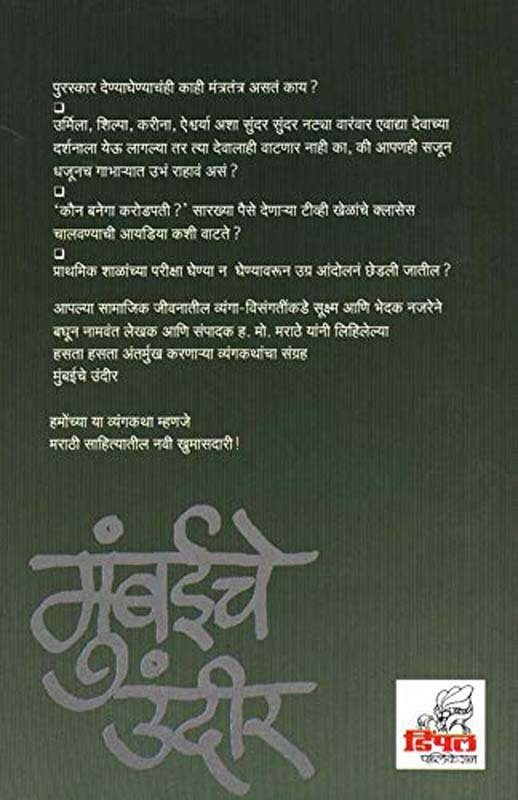 पुरस्कार देण्याघेण्याचंही काही मंत्रतंत्र असतं काय ?
उर्मिला, शिल्पा, करीना, ऐश्वर्या अशा सुंदर सुंदर नट्या वारंवार एवाद्या देवाच्या
दर्शनाला येऊ लागल्या तर त्या देवालाही वाटणार नाही का, की आपणही सजून
धजूनच गाभाऱ्यात उभं राहावं असं ?
‘कौन बनेगा करोडपती ?’ सारख्या पैसे देणाऱ्या टीव्ही खेळांचे क्लासेस
चालवण्याची आयडिया कशी वाटते ?
प्राथमिक शाळांच्या परीक्षा घेण्या न घेण्यावरून उग्र आंदोलनं छेडली जातील ?
आपल्या सामाजिक जीवनातील व्यंगा-विसंगतींकडे सूक्ष्म आणि भेदक नजरेने
बघून नामवंत लेखक आणि संपादक ह. मो. मराठे यांनी लिहिलेल्या
हसता हसता अंतर्मुख करणाऱ्या व्यंगकथांचा संग्रह
मुंबईचे उंदीर
हमोंच्या या व्यंगकथा म्हणजे
मराठी साहित्यातील नवी खुमासदारी !
मुंबईचे
उंदीर
डिंपल
पब्लिकेशन